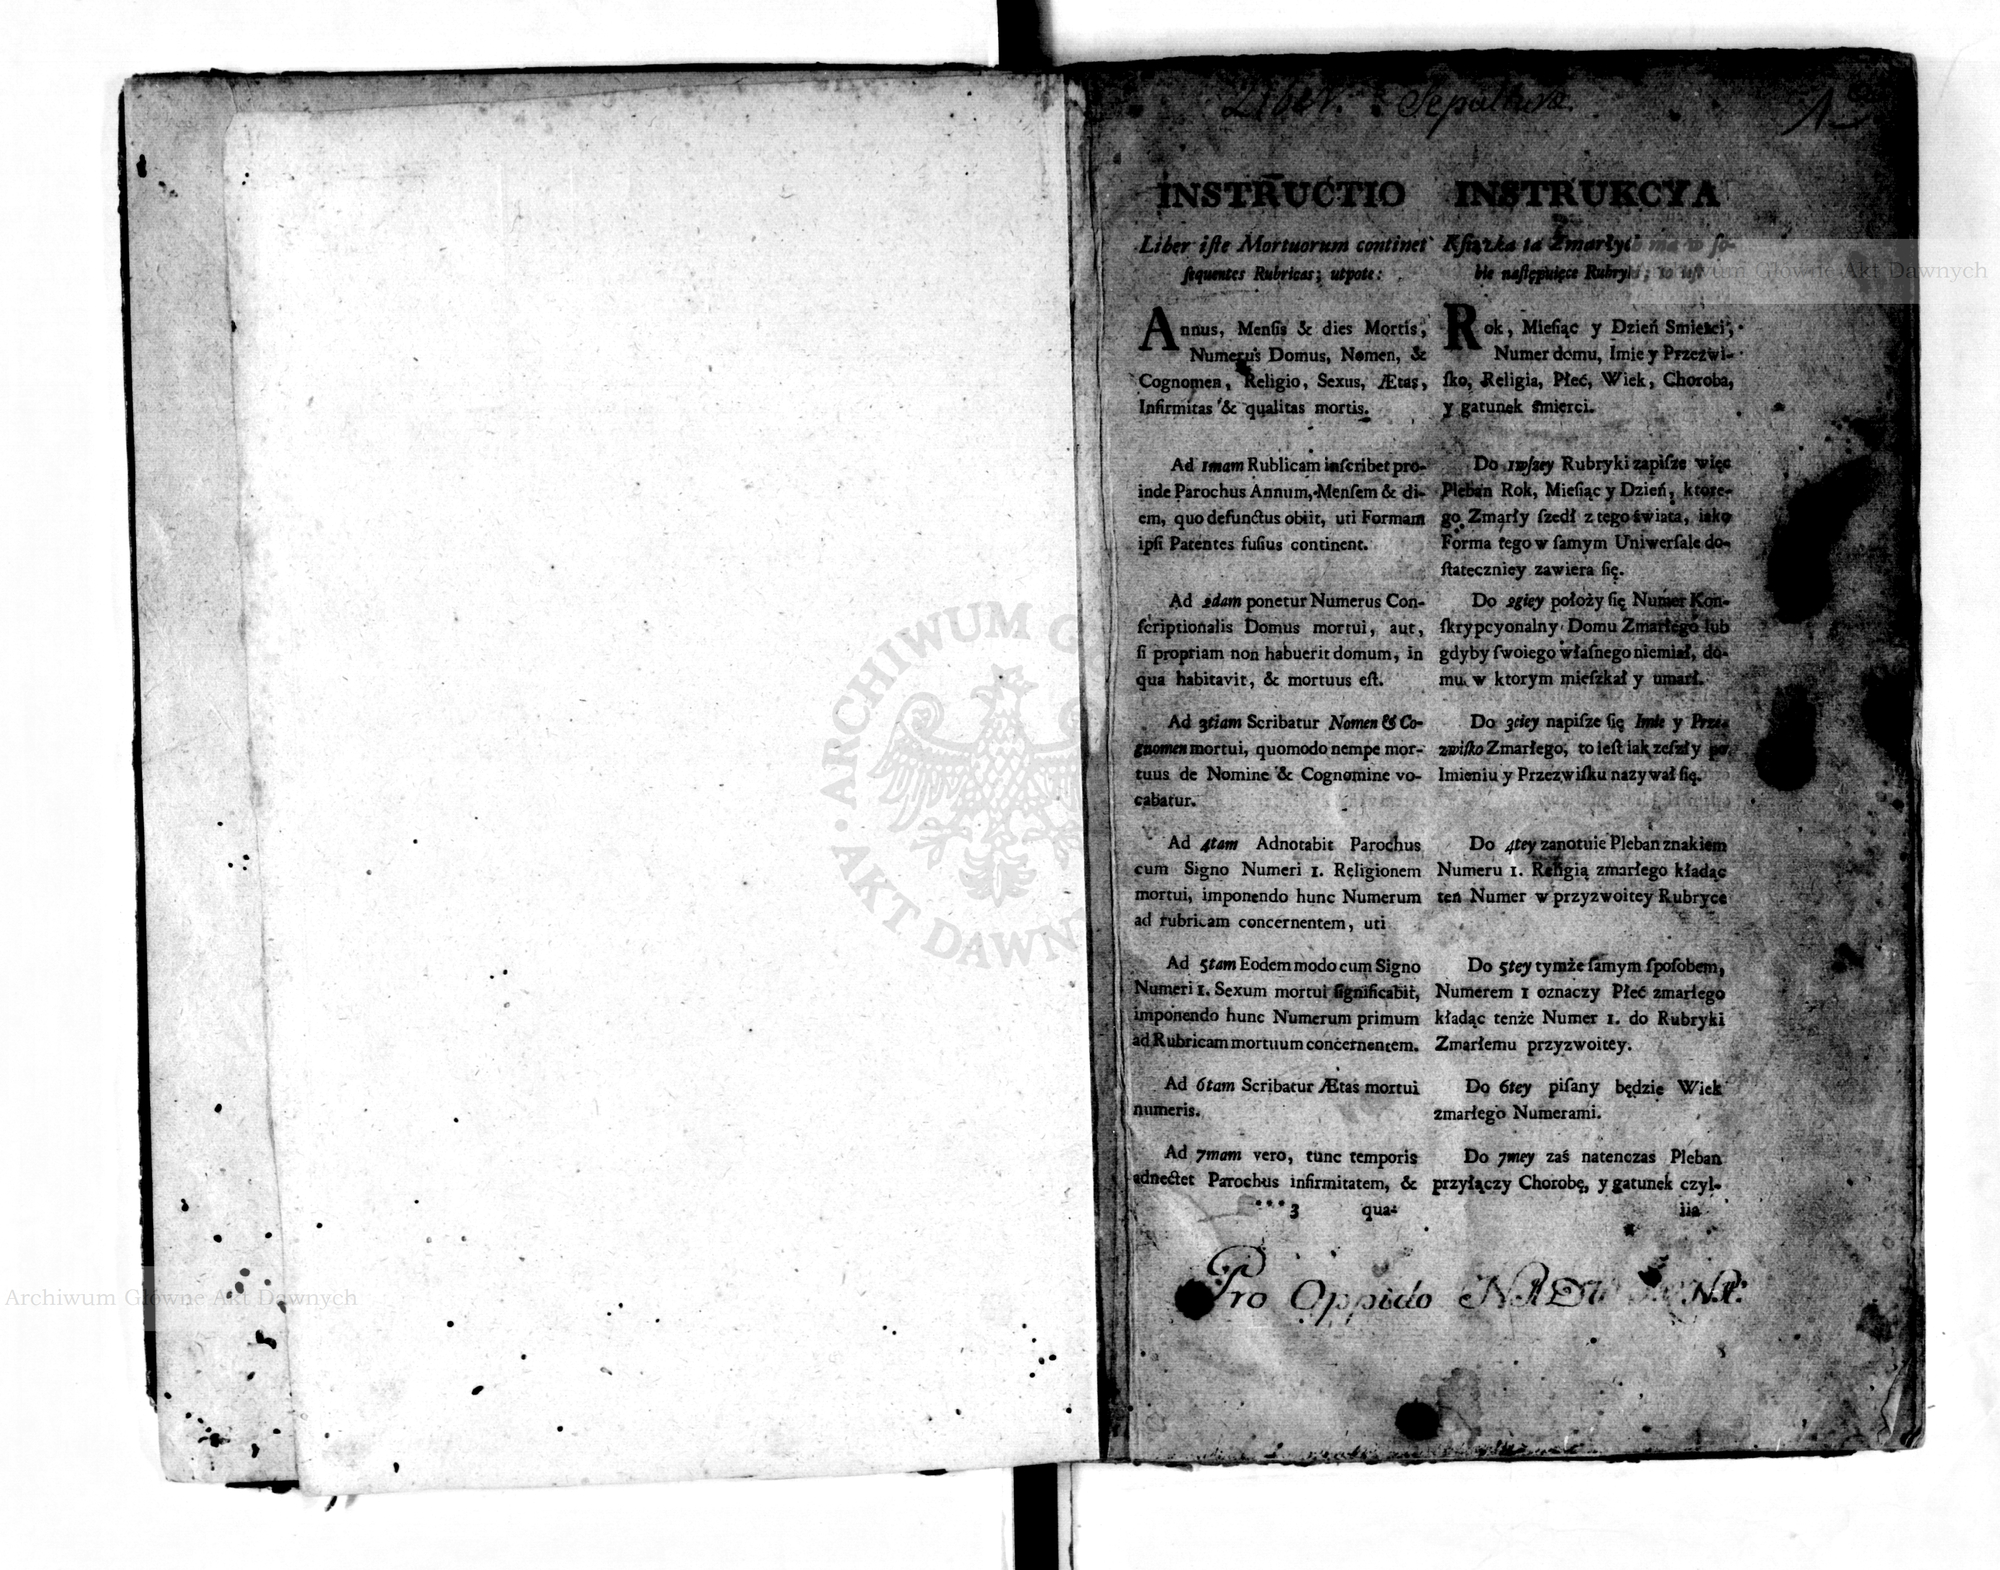 Liber Sepulturæ
1
INSTRUCTIO
Liber iſte Mortuorum continet
ſequentes Rubricas; utpote:
Annus, Menſis & dies Mortis,
Numerus Domus, Nomen, &
Cognomen, Religio, Sexus, Ætas,
Infirmitas & qualitas mortis.
Ad 1mam Rublicam inſcribet pro-
inde Parochus Annum, Menſem & di-
em, quo defunctus obiit, uti Formam
ipſi Patentes fuſius continent.
Ad 2dam ponetur Numerus Con-
ſcriptionalis Domus mortui, aut,
ſi propriam non habuerit domum, in
qua habitavit, & mortuus eſt.
Ad 3tiam Scribatur Nomen & Co-
gnomen mortui, quomodo nempe mor-
tuus de Nomine & Cognomine vo-
cabatur.
Ad 4tam Adnotabit Parochus
cum Signo Numeri 1. Religionem
mortui, imponendo hunc Numerum
ad rubricam concernentem, uti
Ad 5tam Eodem modo cum Signo
Numeri 1. Sexum mortui ſignificabit,
imponendo hunc Numerum primum
ad Rubricam mortuum concernentem.
Ad 6tam Scribatur Ætas mortui
numeris.
Ad 7mam vero, tunc temporis
adnectet Parochus infirmitatem, &
***3 qua-
INSTRUKCYA
Kſiążka ta Zmarłych ma w ſo-
bie naſtępuiące Rubryki; to ieſt
Rok, Mieſiąc y Dzień Smierci,
Numer domu, Imie y Przezwi-
ſko, Religia, Płeć, Wiek, Choroba,
y gatunek śmierci.
Do 1wſzey Rubryki zapiſze więc
Pleban Rok, Mieſiąc y Dzień, ktore-
go Zmarły ſzedł z tego świata, iako
Forma tego w ſamym Uniwerſale do-
ſtateczniey zawiera ſię.
Do 2giey położy ſię Numer Kon-
ſkrypcyonalny Domu Zmarłego lub
gdyby ſwoiego właſnego niemiał, do-
mu w ktorym mieſzkał y umarł.
Do 3ciey napiſze ſię Imie y Prze-
zwiſko Zmarłego, to ieſt iak zeſzły po
Imieniu y Przezwiſku nazywał ſię.
Do 4tey zanotuie Pleban znakiem
Numeru 1. Religią zmarłego kładąc
ten Numer w przyzwoitey Rubryce
Do 5tey tymże ſamym ſpoſobem,
Numerem 1 oznaczy Płeć zmarłego
kładąc tenże Numer 1. do Rubryki
Zmarłemu przyzwoitey.
Do 6tey piſany będzie Wiek
zmarłego Numerami.
Do 7mey zaś natenczas Pleban
przyłączy Chorobę, y gatunek czyl-
iia
Pro Oppido
ARCHIWUM G
AKT DAWN
Archiwum Główne Akt Dawnych
Archiwum Główne Akt Dawnych